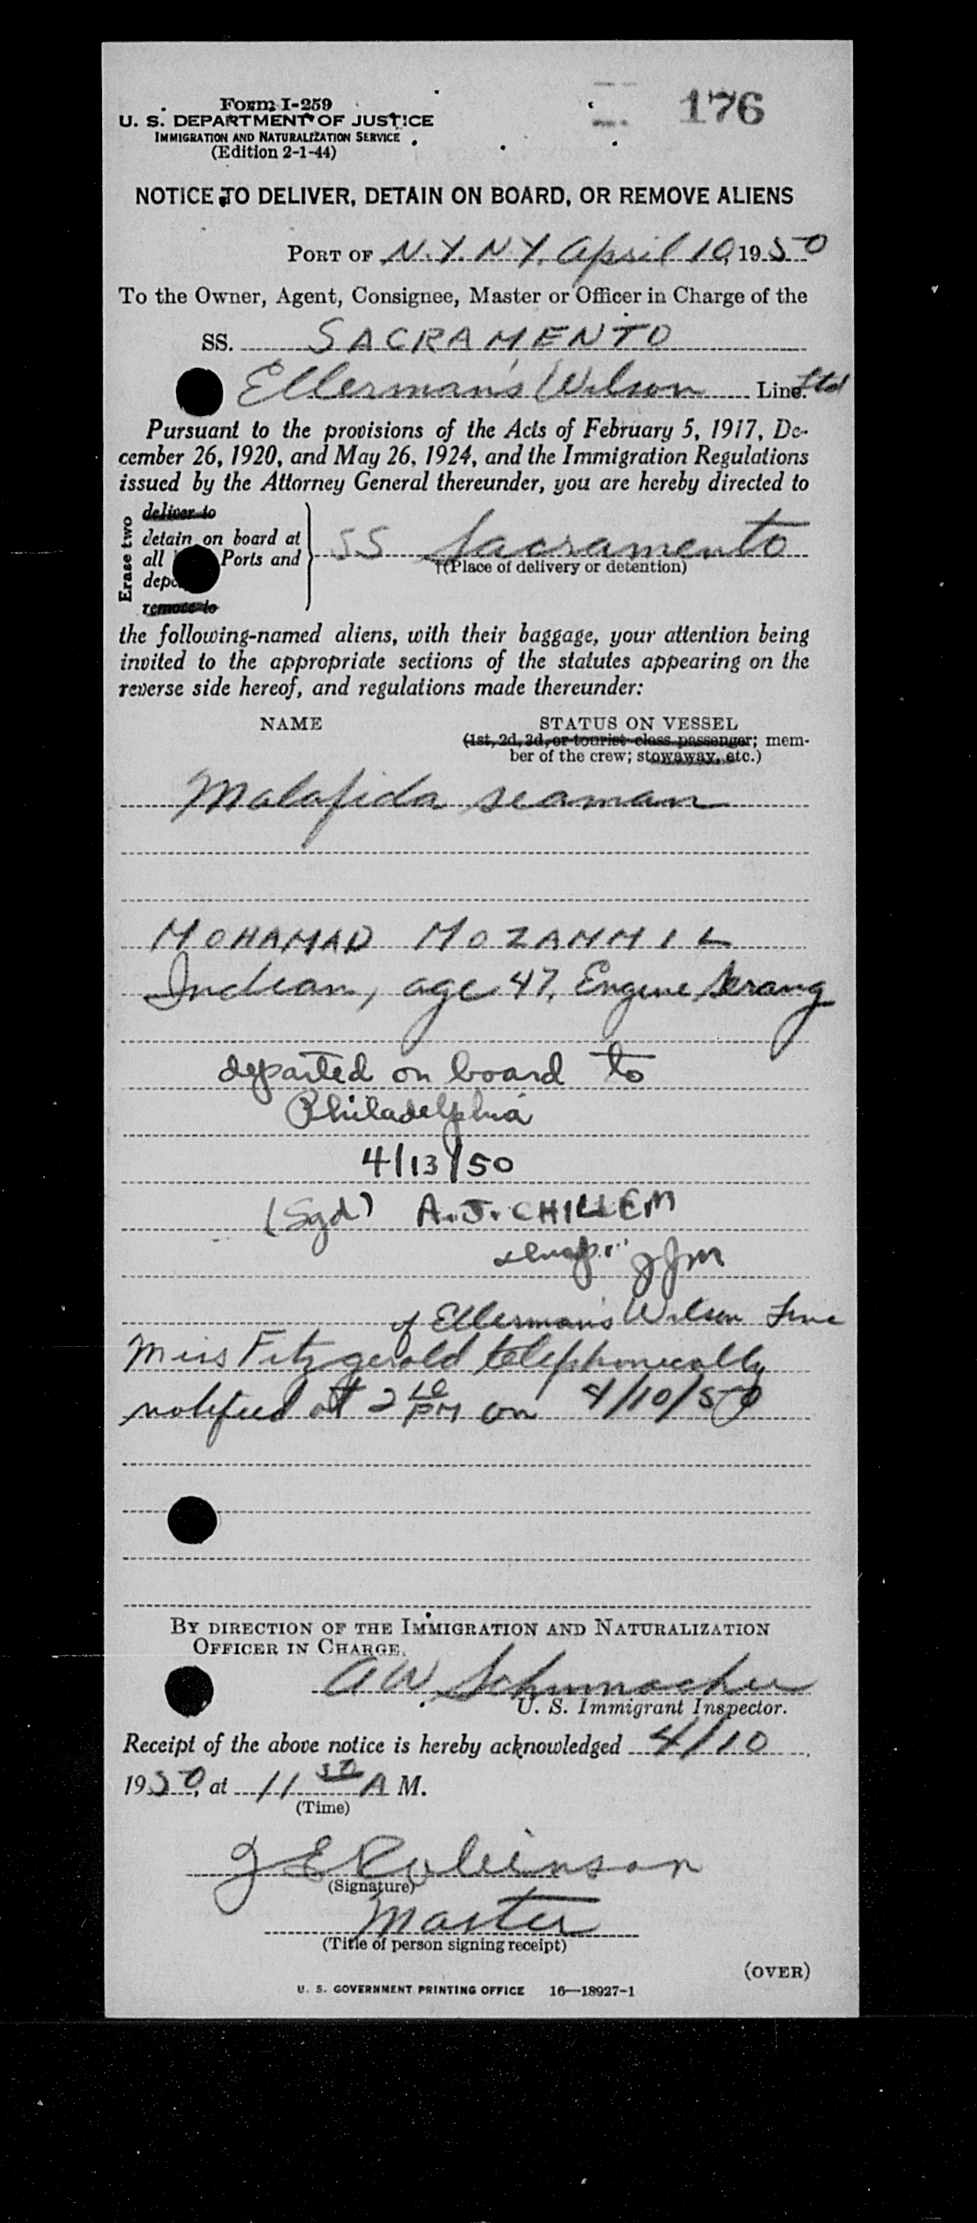 176
Form I-259
U. S. DEPARTMENT OF JUSTICE
IMMIGRATION AND NATURALIZATION SERVICE
(Edition 2-1-44)
NOTICE TO DELIVER, DETAIN ON BOARD, OR REMOVE ALIENS
PORT OF N.Y. N.Y. April 10, 1950
To the Owner, Agent, Consignee, Master or Officer in Charge of the
SS. SACRAMENTO
Ellerman's Wilson Line. Ltd
Pursuant to the provisions of the Acts of February 5, 1917, De-
cember 26, 1920, and May 26, 1924, and the Immigration Regulations
issued by the Attorney General thereunder, you are hereby directed to
Erase two
deliver to
detain on board at
all Ports and
remove to
SS Sacramento
†(Place of delivery or detention)
the following-named aliens, with their baggage, your attention being
invited to the appropriate sections of the statutes appearing on the
reverse side hereof, and regulations made thereunder:
NAME STATUS ON VESSEL
(1st, 2d, 3d, or tourist class passenger; mem-
ber of the crew; stowaway, etc.)
Malafida seaman
MOHAMAD MOZAMMIL
Indian, age 47, Engine Serang
departed on board to
Philadelphia
4/13/50
(Sgd) A. J. CHILLEM
JJM
of Ellerman's Wilson Line
Miss Fitzgerald telephonically
notified at 2 10 PM on 4/10/50
BY DIRECTION OF THE IMMIGRATION AND NATURALIZATION
OFFICER IN CHARGE.
A W Schumacher
U. S. Immigrant Inspector.
Receipt of the above notice is hereby acknowledged 4/10
1950, at 11 50 A M.
(Time)
J E Robinson
(Signature)
Master
(Title of person signing receipt)
(OVER)
U. S. GOVERNMENT PRINTING OFFICE 16—18927-1